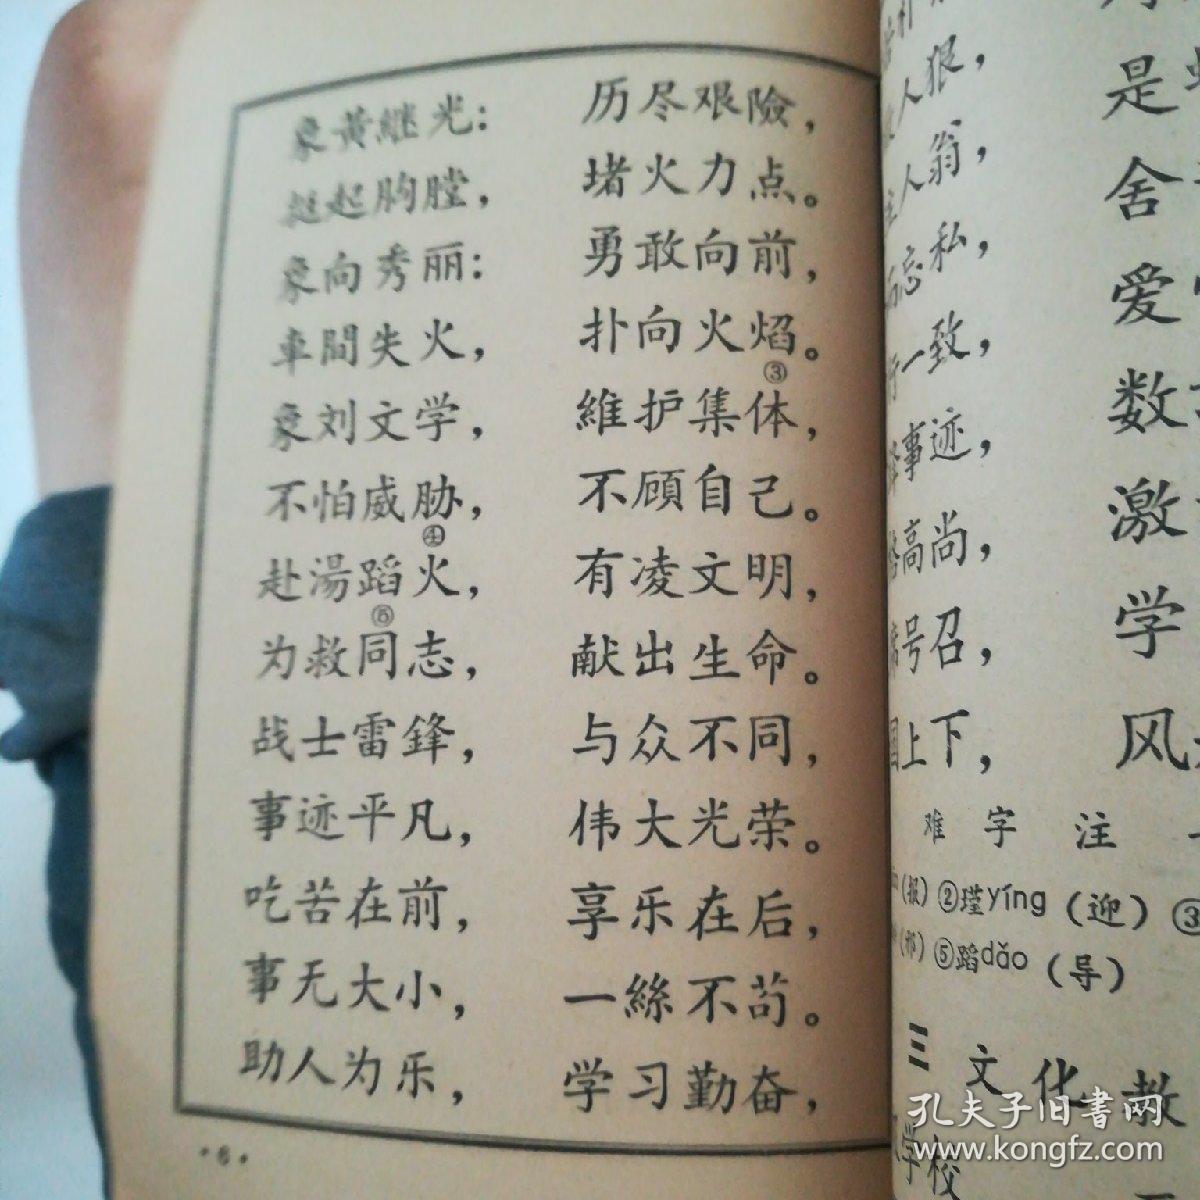 象黄继光：　历尽艰險，
挺起胸膛，　堵火力点。
象向秀丽：　勇敢向前，
車間失火，　扑向火焰。
③
象刘文学，　維护集体，
不怕威胁，　不顧自己。
④
赴湯蹈火，　有凌文明，
⑤
为救同志，　献出生命。
战士雷鋒，　与众不同，
事迹平凡，　伟大光荣。
吃苦在前，　享乐在后，
事无大小，　一絲不苟。
助人为乐，　学习勤奋，
·6·
人狠，
是
人翁，
舍
忘私，
爱
一致，
数
事迹，
激
高尚，
学
号召，
上下，
风
难字注
（报）②瑩yíng（迎）③
⑤蹈dǎo（导）
三 文化教
学校
孔夫子旧書网
www.kongfz.com